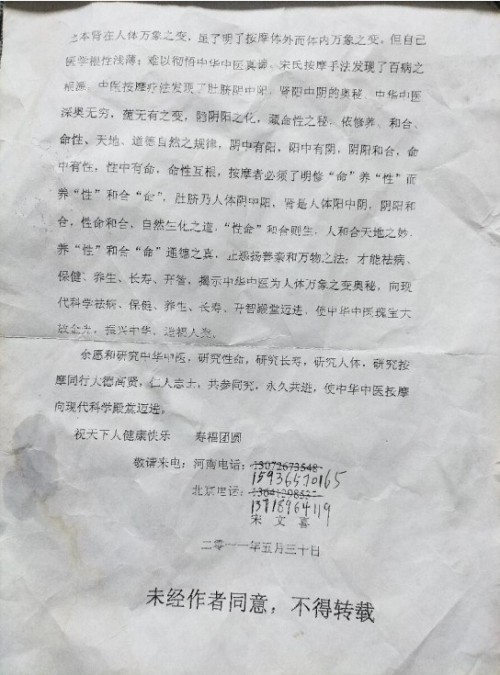 之本肾在人体万象之变，虽了明了按摩体外而体内万象之变。但自己
医学根性浅薄；难以彻悟中华中医真谛。宋氏按摩手法发现了百病之
根源，中医按摩疗法发现了肚脐阴中阳，肾阳中阴的奥秘，中华中医
深奥无穷，施无有之变，隐阴阳之化，藏命性之秘。依修养、和合、
命性、天地、道德自然之规律，阴中有阳，阳中有阴，阴阳和合，命
中有性，性中有命，命性互根，按摩者必须了明修“命”养“性”而
养“性”和合“命”，肚脐乃人体阴中阳，肾是人体阳中阴，阴阳和
合，性命和合，自然生化之道，“性命”和合则生，人和合天地之妙，
养“性”和合“命”道德之真，止恶扬善亲和万物之法；才能祛病、
保健、养生、长寿、开智，揭示中华中医为人体万象之变奥秘，向现
代科学祛病、保健、养生、长寿、开智殿堂迈进，使中华中医瑰宝大
放金光，振兴中华、造福人类。
余愿和研究中华中医，研究性命，研究长寿，研究人体，研究按
摩同行大德高贤，仁人志士，共参同究，永久共进，使中华中医按摩
向现代科学殿堂迈进。
祝天下人健康快乐 寿福团圆
敬请来电：河南电话：13072673548
15936570165
北京电话：
13718964119
宋文喜
二零一一年五月三十日
未经作者同意，不得转载